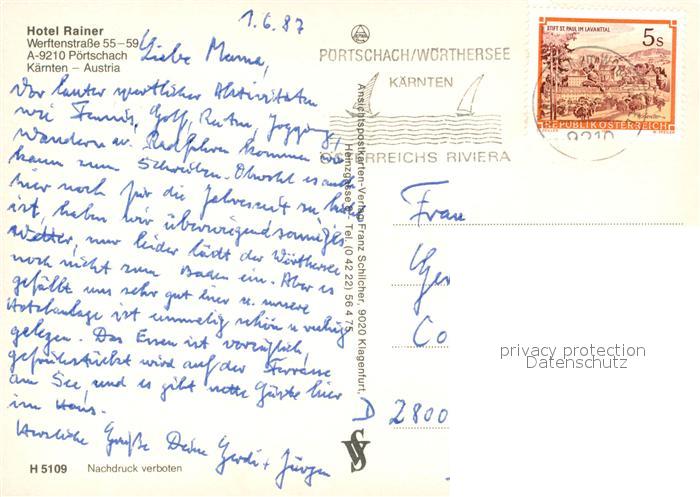 1.6.87
Hotel Rainer
Werftenstraße 55–59
A-9210 Pörtschach
Kärnten – Austria
Liebe Mama,
Vor lauter sportlicher Aktivitäten
wie Tennis, Golf, Reiten, Jogging,
Wandern u. Radfahren kommen wir
kaum zum Schreiben. Obwohl es auch
hier noch für die Jahreszeit zu kühl
ist, haben wir überwiegend sonniges
Wetter, nur leider lädt der Wörthersee
noch nicht zum Baden ein. Aber es
gefällt uns sehr gut hier u. unsere
Hotelanlage ist unmelig schön u ruhig
gelegen. Das Essen ist vorzüglich,
gefrühstückt wird auf der Terrasse
am See, und es gibt nette Gäste hier
im Haus.
Herzliche Grüße Deine Gerdi + Jürgen
H 5109 Nachdruck verboten
Ansichtspostkarten-Verlag Franz Schilcher, 9020 Klagenfurt,
Heinzgasse Tel. (0 42 22) 56 4 75
PÖRTSCHACH/WÖRTHERSEE
KÄRNTEN
ÖSTERREICHS RIVIERA
9210
STIFT ST. PAUL IM LAVANTTAL
5s
REPUBLIK ÖSTERREICH
Frau
Ger
Co
D 2800
privacy protection
Datenschutz